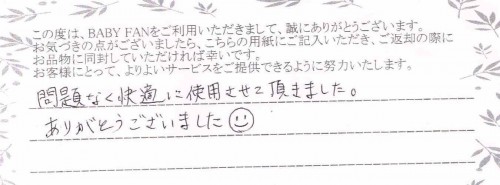 この度は、BABY FANをご利用いただきまして、誠にありがとうございます。
お気づきの点がございましたら、こちらの用紙にご記入いただき、ご返却の際に
お品物に同封していただければ幸いです。
お客様にとって、よりよいサービスをご提供できるように努力いたします。
問題なく快適に使用させて頂きました。
ありがとうございました